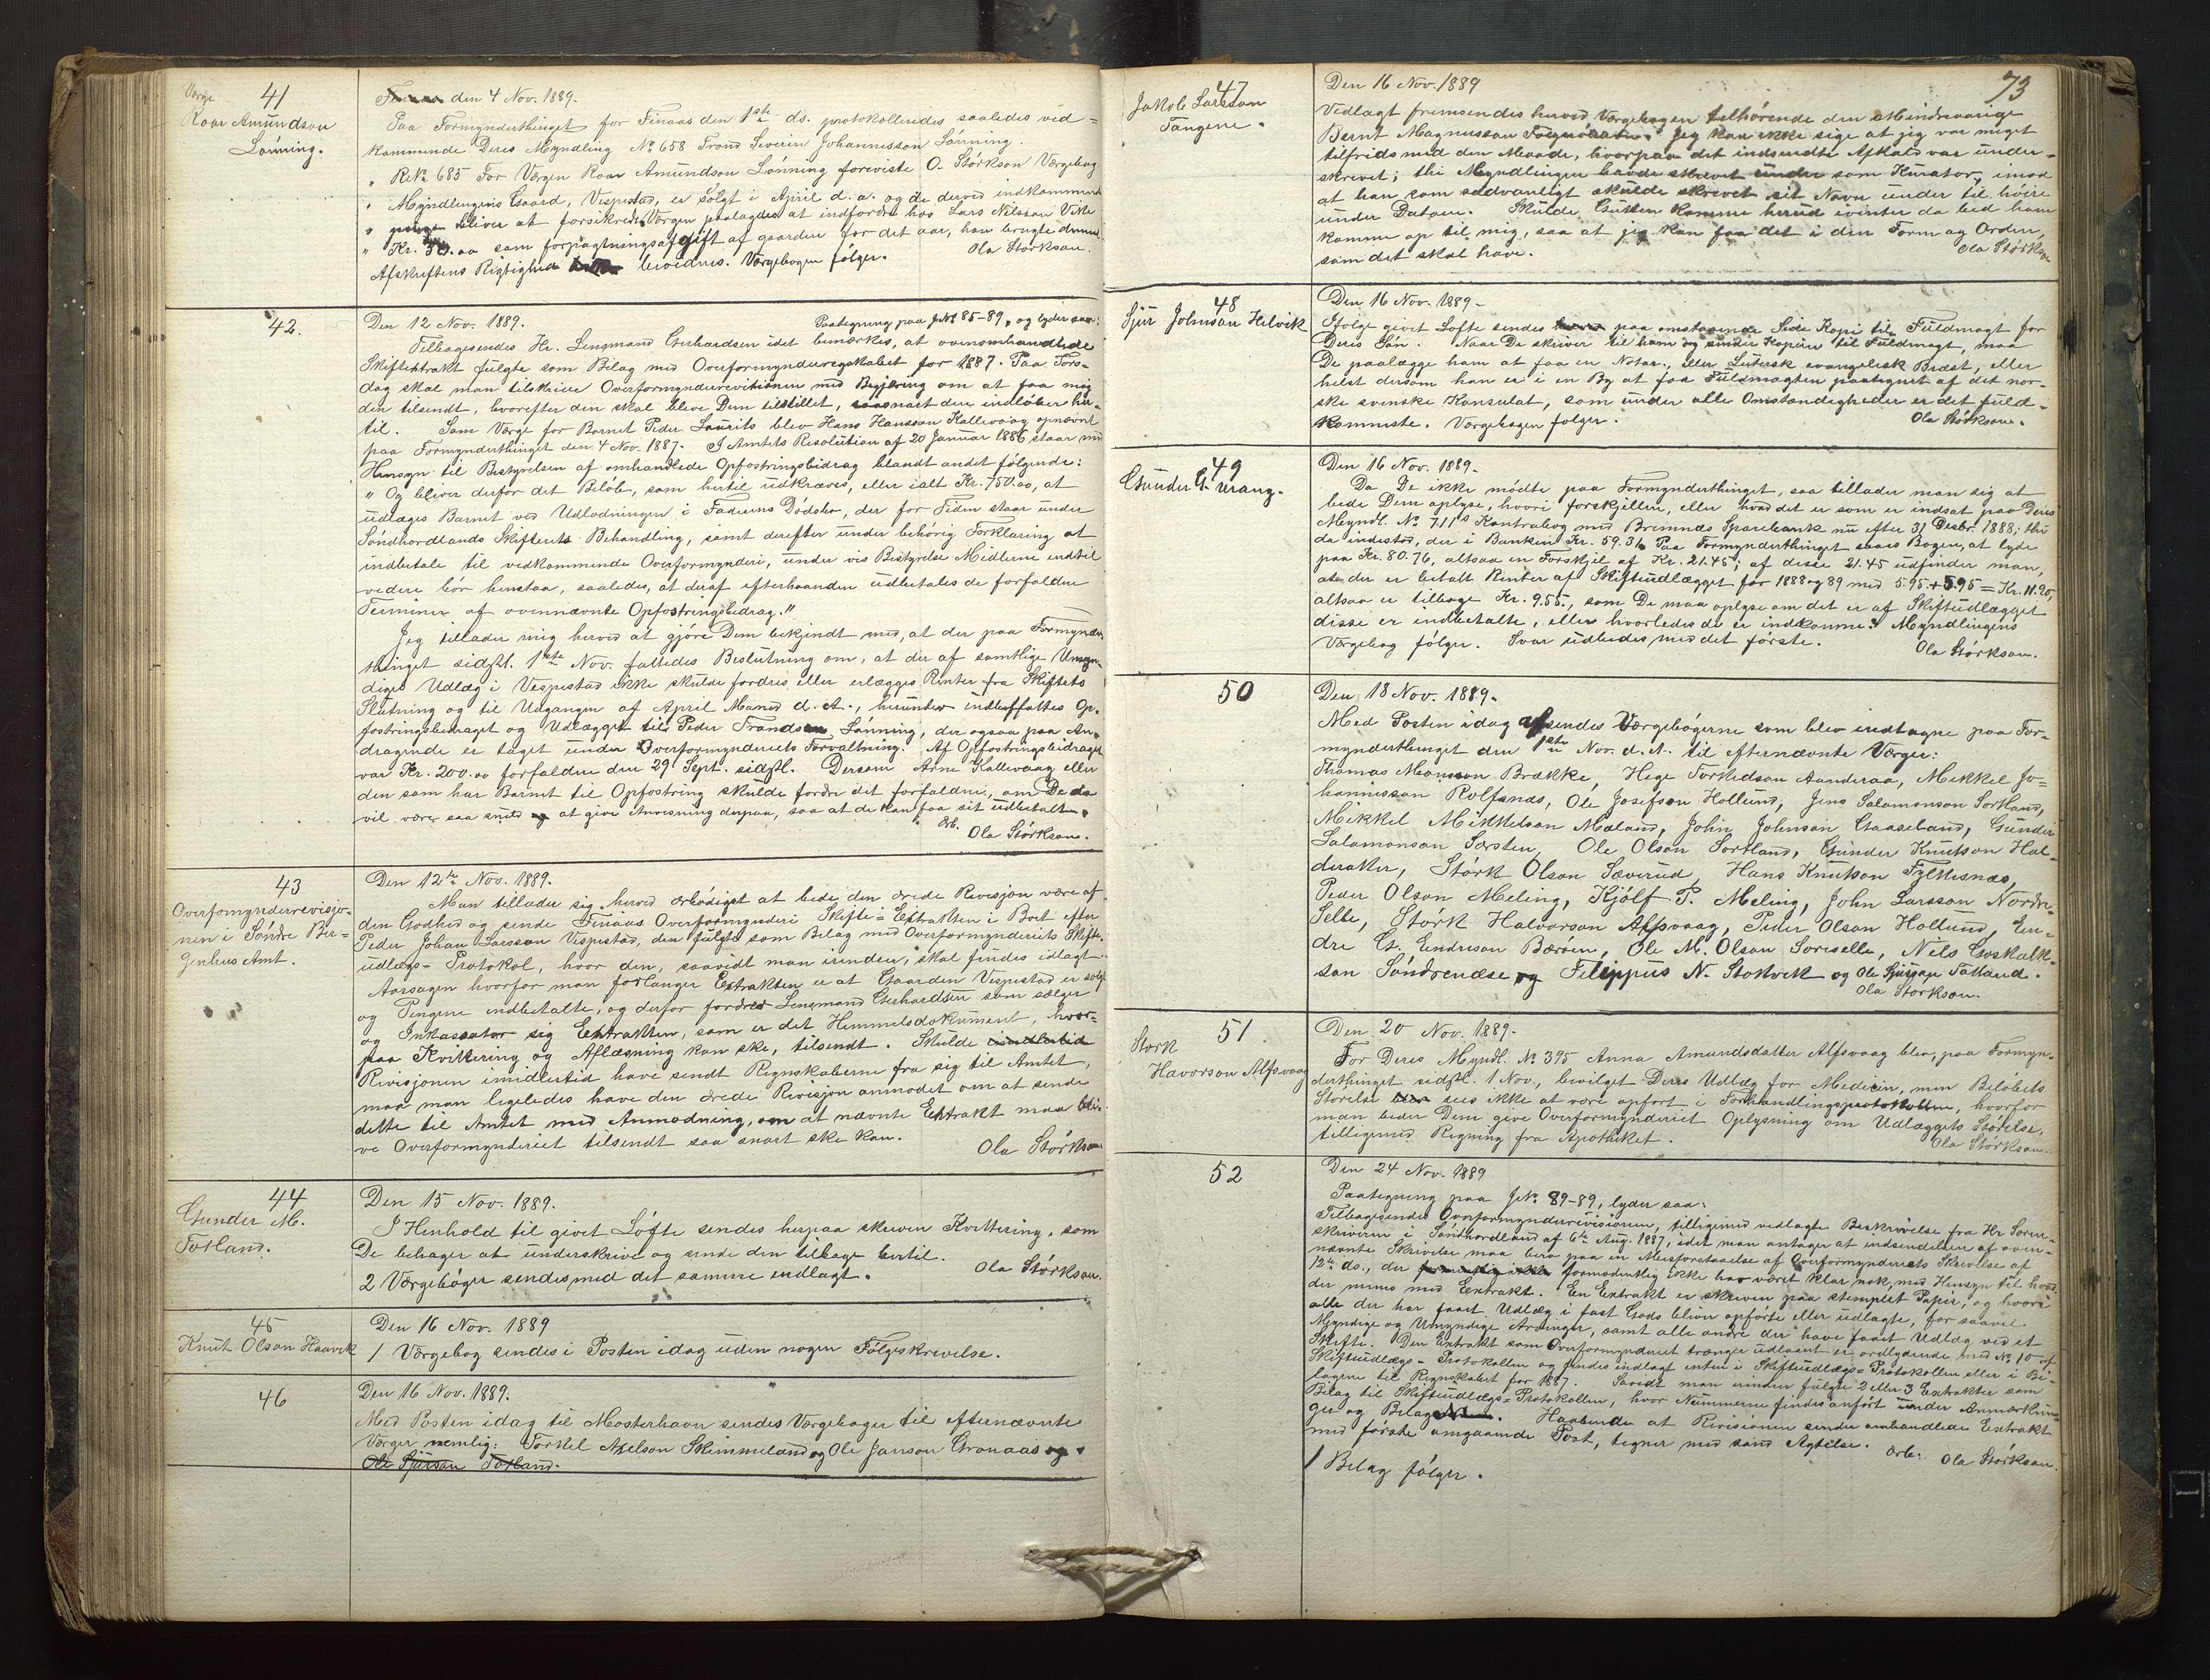 Værge 41
Roar Amundson
Lønning.
den 4 Nov. 1889.
Paa Formynderthinget for Finaas den 1ste ds. protokolleredes saaledes ved-
kommende Deres Myndling No 658 Trond Severin Johannesson Lønning.
" RNo 685 For Værgen Roar Amundson Lønning foreviste O. Størkson Værgebog
" Myndlingens Gaard, Vespestad, er solgt i April d. a. og de derved indkommende
" penge bliver at forsikrede. Værgen paalagdes at indfordre hos Lars Nilsson Vike
" Kr. 30.00 som forpagtningsafgift af gaarden for det aar, han brugte denne.
Afskriftens Rigtighed bevidnes. Værgebogen følger. Ola Størkson.
42.
Den 12 Nov. 1889. Paategning paa JNo 85-89, og lyder saa:
Tilbagesendes Hr. Lensmand Gerhardsen idet bemærkes, at ovenomhandlede
Skifteextrakt fulgte som Bilag med Overformynderregnskabet for 1887. Paa Tors-
dag skal man tilskrive Overformynderrevisionen med Begjæring om at faa mig
den tilsendt, hvorefter den skal blive Dem tilstillet, saasnart den indløber her-
til. Som Værge for Barnet Peder Laurits blev Hans Hansson Kallevaag opnævnt
paa Formynderthinget den 4 Nov. 1887. I Amtets Resolution af 20 Januar 1886 staar med
Hensyn til Bestyrelsen af omhandlede Opfostringsbidrag blandt andet følgende:
" Og bliver derfor det Beløb, som hertil udkræves, eller ialt Kr. 750.00, at
udlægges Barnet ved Udlodningen i Faderens Dødsbo, der for Tiden staar under
Søndhordlands Skifterets Behandling, samt derefter under behørig Forklaring at
indbetale til vedkommende Overformynderi, under vis Bestyrelse Midlerne indtil
videre bør henstaa, saaledes, at deraf efterhaanden udbetales de forfaldne
Terminer af ovennævnte Opfostringsbidrag."
Jeg tillader mig herved at gjøre Dem bekjendt med, at der paa Formynder-
thinget sidstl. 1ste Nov. fattedes Beslutning om, at der af samtlige Umyn-
diges Udlæg i Vespestad ikke skulde fordres eller erlægges Renter fra Skiftets
Slutning og til Udgangen af April Maaned d. A., herunder indbefattes Op-
fostringsbidraget og Udlægget til Peder Trondsen Lønning, der ogsaa paa An-
dragende er taget under Overformynderiets Forvaltning. Af Opfostringsbidraget
var Kr. 200.00 forfaldne den 29 Sept. sidstl. Dersom Arne Kallevaag eller
den som har Barnet til Opfostring skulde fordre det forfaldne, om De da
vil være saa snild og at give Anvisning derpaa, saa at de kan faa sit udbetalt.
Erb. Ola Størkson.
43
Overformynderrevisjo-
nen i Søndre Ber-
genhus Amt.
Den 12te Nov. 1889.
Man tillader sig herved ærbødigst at bede den ærede Revisjon være af
den Godhed og sende Finaas Overformynderi Skifte-Extrakten i Boet efter
Peder Johan Larsson Vespestad, den fulgte som Bilag med Overformynderiets Skifte-
udlægs-Protokol, hvor den, saavidt man erindrer, skal findes idlagt.
Aarsagen hvorfor man forlanger Extrakten er at Gaarden Vespestad er solgt
og Pengene indbetalte, og derfor fordrer Lensmand Gerhardsen som sælger
og Inkassator sig Extrakten, som er det Hemmelsdokument, hvor-
paa Kvittering og Aflæsning kan ske, tilsendt. Skulde imidlertid
Revisjonen imidlertid have sendt Regnskaberne fra sig til Amtet,
maa man ligeledes have den ærede Revisjon anmodet om at sende
dette til Amtet med Anmodning, om at nævnte Extrakt maa bli-
ve Overformynderiet tilsendt saa snart ske kan. Ola Størkson
44
Gunder M.
Totland.
Den 15 Nov. 1889.
I Henhold til givet Løfte sendes herpaa skreven Kvittering, som
De behager at underskrive og sende den tilbage hertil.
2 Værgebøger sendes med det samme indlagt. Ola Størkson.
45
Knut Olson Haavik
Den 16 Nov. 1889
1 Værgebog sendes i Posten idag uden nogen Følgeskrevelse.
46
Den 16 Nov. 1889.
Med Posten idag til Mosterhavn sendes Værgebøger til efternævnte
Værger nemlig: Torkel Axelson Skimmeland og Ole Janson Grønaas og
Ole Sjurson Totland.
73
47
Jakob Larsson
Tangene.
Den 16 Nov. 1889
Vedlagt fremsendes herved Værgebogen tilhørende den Mindreaarige
Bernt Magnusson Jeg kan ikke sige at jeg var meget
tilfreds med den Maade, hvorpaa det indsendte Afkald var under-
skrevet; thi Myndlingen havde skrevet under som Kurator, imod
at han som sædvanligt skulde skrevet sit Navn under til høire
under Datoen. Skulde Gutten komme herud ivinter da bed ham
komme op til mig, saa at jeg kan faa det i den Form og Orden,
som det skal have. Ola Størkson
48
Sjur Johnson Helvik
Den 16 Nov. 1889.
Ifølge givet Løfte sendes paa omstaaende Side Kopi til Fuldmagt for
Deres Søn. Naar De skriver til ham og sender Kopien til Fuldmagt, maa
De paalægge ham at faa en Notar., eller Lutersk evangelisk Præst, eller
helst dersom han er i en By at faa Fuldmagten paategnet af det nor-
ske svenske Konsulat, som under alle Omstændigheder er det fuld-
komneste. Værgebogen følger. Ola Størkson.
49
Gunder G. Urang.
Den 16 Nov. 1889.
Da De ikke mødte paa Formynderthinget, saa tillader man sig at
bede Dem oplyse, hvori forskjellen, eller hvad det er som er indsat paa Deres
Myndl. No 711s Kontrabog med Bremnæs Sparebank nu efter 31 Desbr. 1888; thi
da indestod, der i Banken Kr. 59.31. Paa Formynderthinget saaes Bogen, at lyde
paa Kr. 80.76, altsaa en Forskjel af Kr. 21.45; af disse 21.45 udfinder man,
at der er betalt Renter af Skifteudlægget for 1888 og 89 med 5.95 + 5.95 = Kr. 11.90,
altsaa er tilbage Kr. 9.55, som De maa oplyse om det er af Skifteudlægget
disse er indbetalte, eller hvorledes de er indkomne? Myndlingens
Værgebog følger. Svar udbedes med det første. Ola Størkson.
50
Den 18 Nov. 1889.
Med Posten idag afsendes Værgebøgerne som blev indtagne paa For-
mynderthinget den 1ste Nov. d. A. til efternævnte Værger:
Thomas Monsson Brække, Hege Torkedson Aanderaa, Mikkel Jo-
hannesson Rolfsnæs, Ole Josefson Hollund, Jens Salamonson Sortland,
Mikkel Mikkelson Mæland, John Johnson Gaaseland, Gunder
Salamonson Sørsten, Ole Olson Sortland, Gunder Knutson Hal-
deraker, Størk Olson Sæverud, Hans Knutson Fylkesnæs,
Peder Olson Meling, Kjølf P. Meling, John Larsson Nordre-
Selle, Størk Halvorson Alfsvaag, Peder Olson Hollund, En-
dre G. Endreson Bærøen, Ole M. Olson Soreselle, Nels Goskalk-
son Søndrenæse og Filippus N. Stokvik og Ole Sjurson Totland.
Ola Størkson.
51.
Størk
Havorson Alfsvaag
Den 20 Nov. 1889.
For Deres Myndl. No 395 Anna Amundsdatter Alfsvaag blev, paa Formyn-
derthinget sidstl. 1 Nov., bevilget Deres Udlæg for Medicin, men Beløbets
Størelse sees ikke at være opført i Forhandlingsprotokollen, hvorfor
man beder Dem give Overformynderiet Oplysning om Udlæggets Størelse,
tilligemed Regning fra Apotheket. Ola Størkson.
52
Den 24 Nov. 1889
Paategning paa JNo 89-89, lyder saa:
Tilbagesendes Overformynderrevisionen, tilligemed vedlagte Beskrivelse fra Hr Soren-
skriveren i Søndhordland af 6te Aug. 1887, idet man antager at indsendelsen af oven-
nævnte Skrivelse maa bero paa en Misforstaaelse af Overformynderiets Skrivelse af
12te ds., der formodentlig ikke har været klar nok, med Hensyn til hvad
der menes med Extrakt. En Extrakt er skreven paa stemplet Papir, og hvori
alle der har faaet Udlæg i fast Gods bliver opførte eller udlagte, for saavel
Myndige og Umyndige Arvinger, samt alle andre der have faaet Udlæg ved et
Skifte. Den Extrakt som Overformynderiet trænger udlaant er ordlydende med No 10 af
Skifteudlægs-Protokollen og findes indlagt enten i Skifteudlægs-Protokollen eller i Bi-
lagene til Regnskabet for 1887. Saavidt man erindrer fulgte 2 eller 3 Extrakter som
Bilag til Skifteudlægs-Protokollen, hvor Nummerne findes anført under Anmærknin-
ger og Bilag. Haabende at Revisionen sender omhandlede Extrakt
med første omgaaende Post, tegner med sand Agtelse.
Ærb: Ola Størkson.
1 Bilag følger.